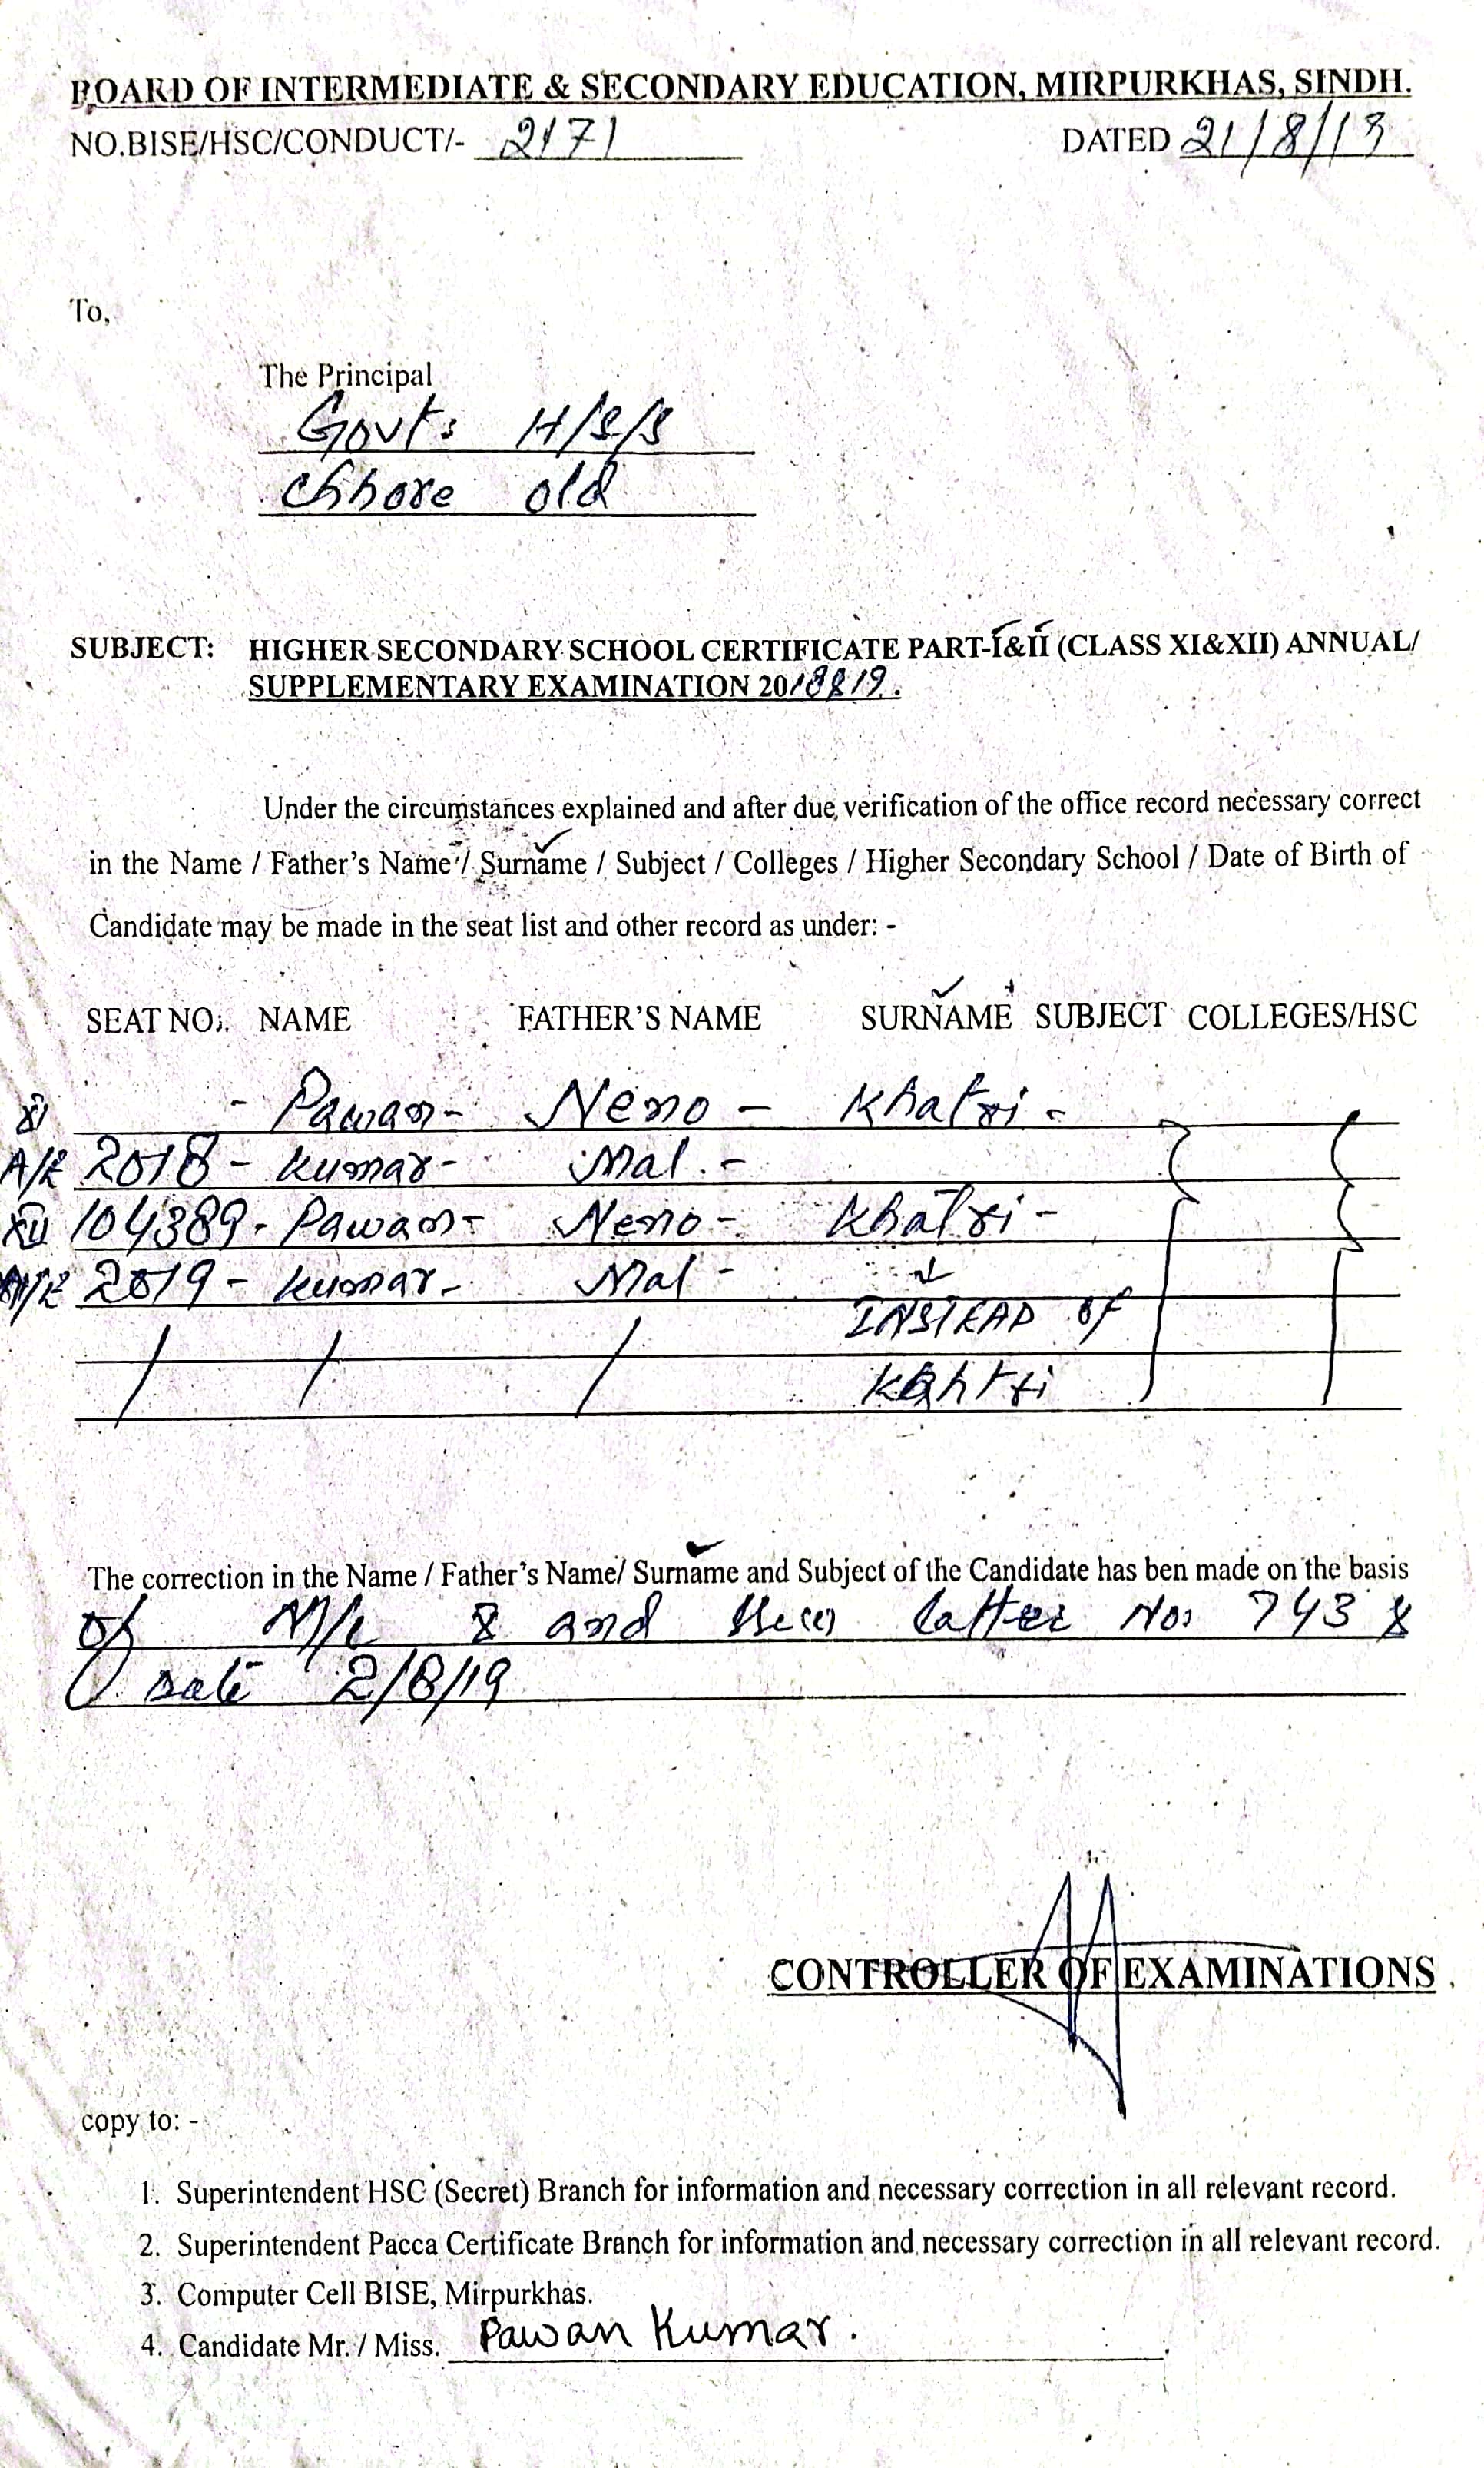 BOARD OF INTERMEDIATE & SECONDARY EDUCATION, MIRPURKHAS, SINDH.
NO.BISE/HSC/CONDUCT/- 2171 DATED 21/8/19
To,
The Principal
Govt: H/S/S
Chhore old
SUBJECT: HIGHER SECONDARY SCHOOL CERTIFICATE PART-I&II (CLASS XI&XII) ANNUAL/
SUPPLEMENTARY EXAMINATION 2018&19.
Under the circumstances explained and after due verification of the office record necessary correct
in the Name / Father's Name / Surname / Subject / Colleges / Higher Secondary School / Date of Birth of
Candidate may be made in the seat list and other record as under: -
SEAT NO. NAME FATHER'S NAME SURNAME SUBJECT COLLEGES/HSC
XI - Pawan - Neno - Khatri -
2018 - Kumar - Mal -
XII 104389 - Pawan - Neno - Khatri -
2019 - Kumar - Mal -
INSTEAD of
Kahtri
The correction in the Name / Father's Name/ Surname and Subject of the Candidate has ben made on the basis
of & and latter No: 743 &
Date 2/8/19
CONTROLLER OF EXAMINATIONS
copy to: -
1. Superintendent HSC (Secret) Branch for information and necessary correction in all relevant record.
2. Superintendent Pacca Certificate Branch for information and necessary correction in all relevant record.
3. Computer Cell BISE, Mirpurkhas.
4. Candidate Mr. / Miss. Pawan Kumar.